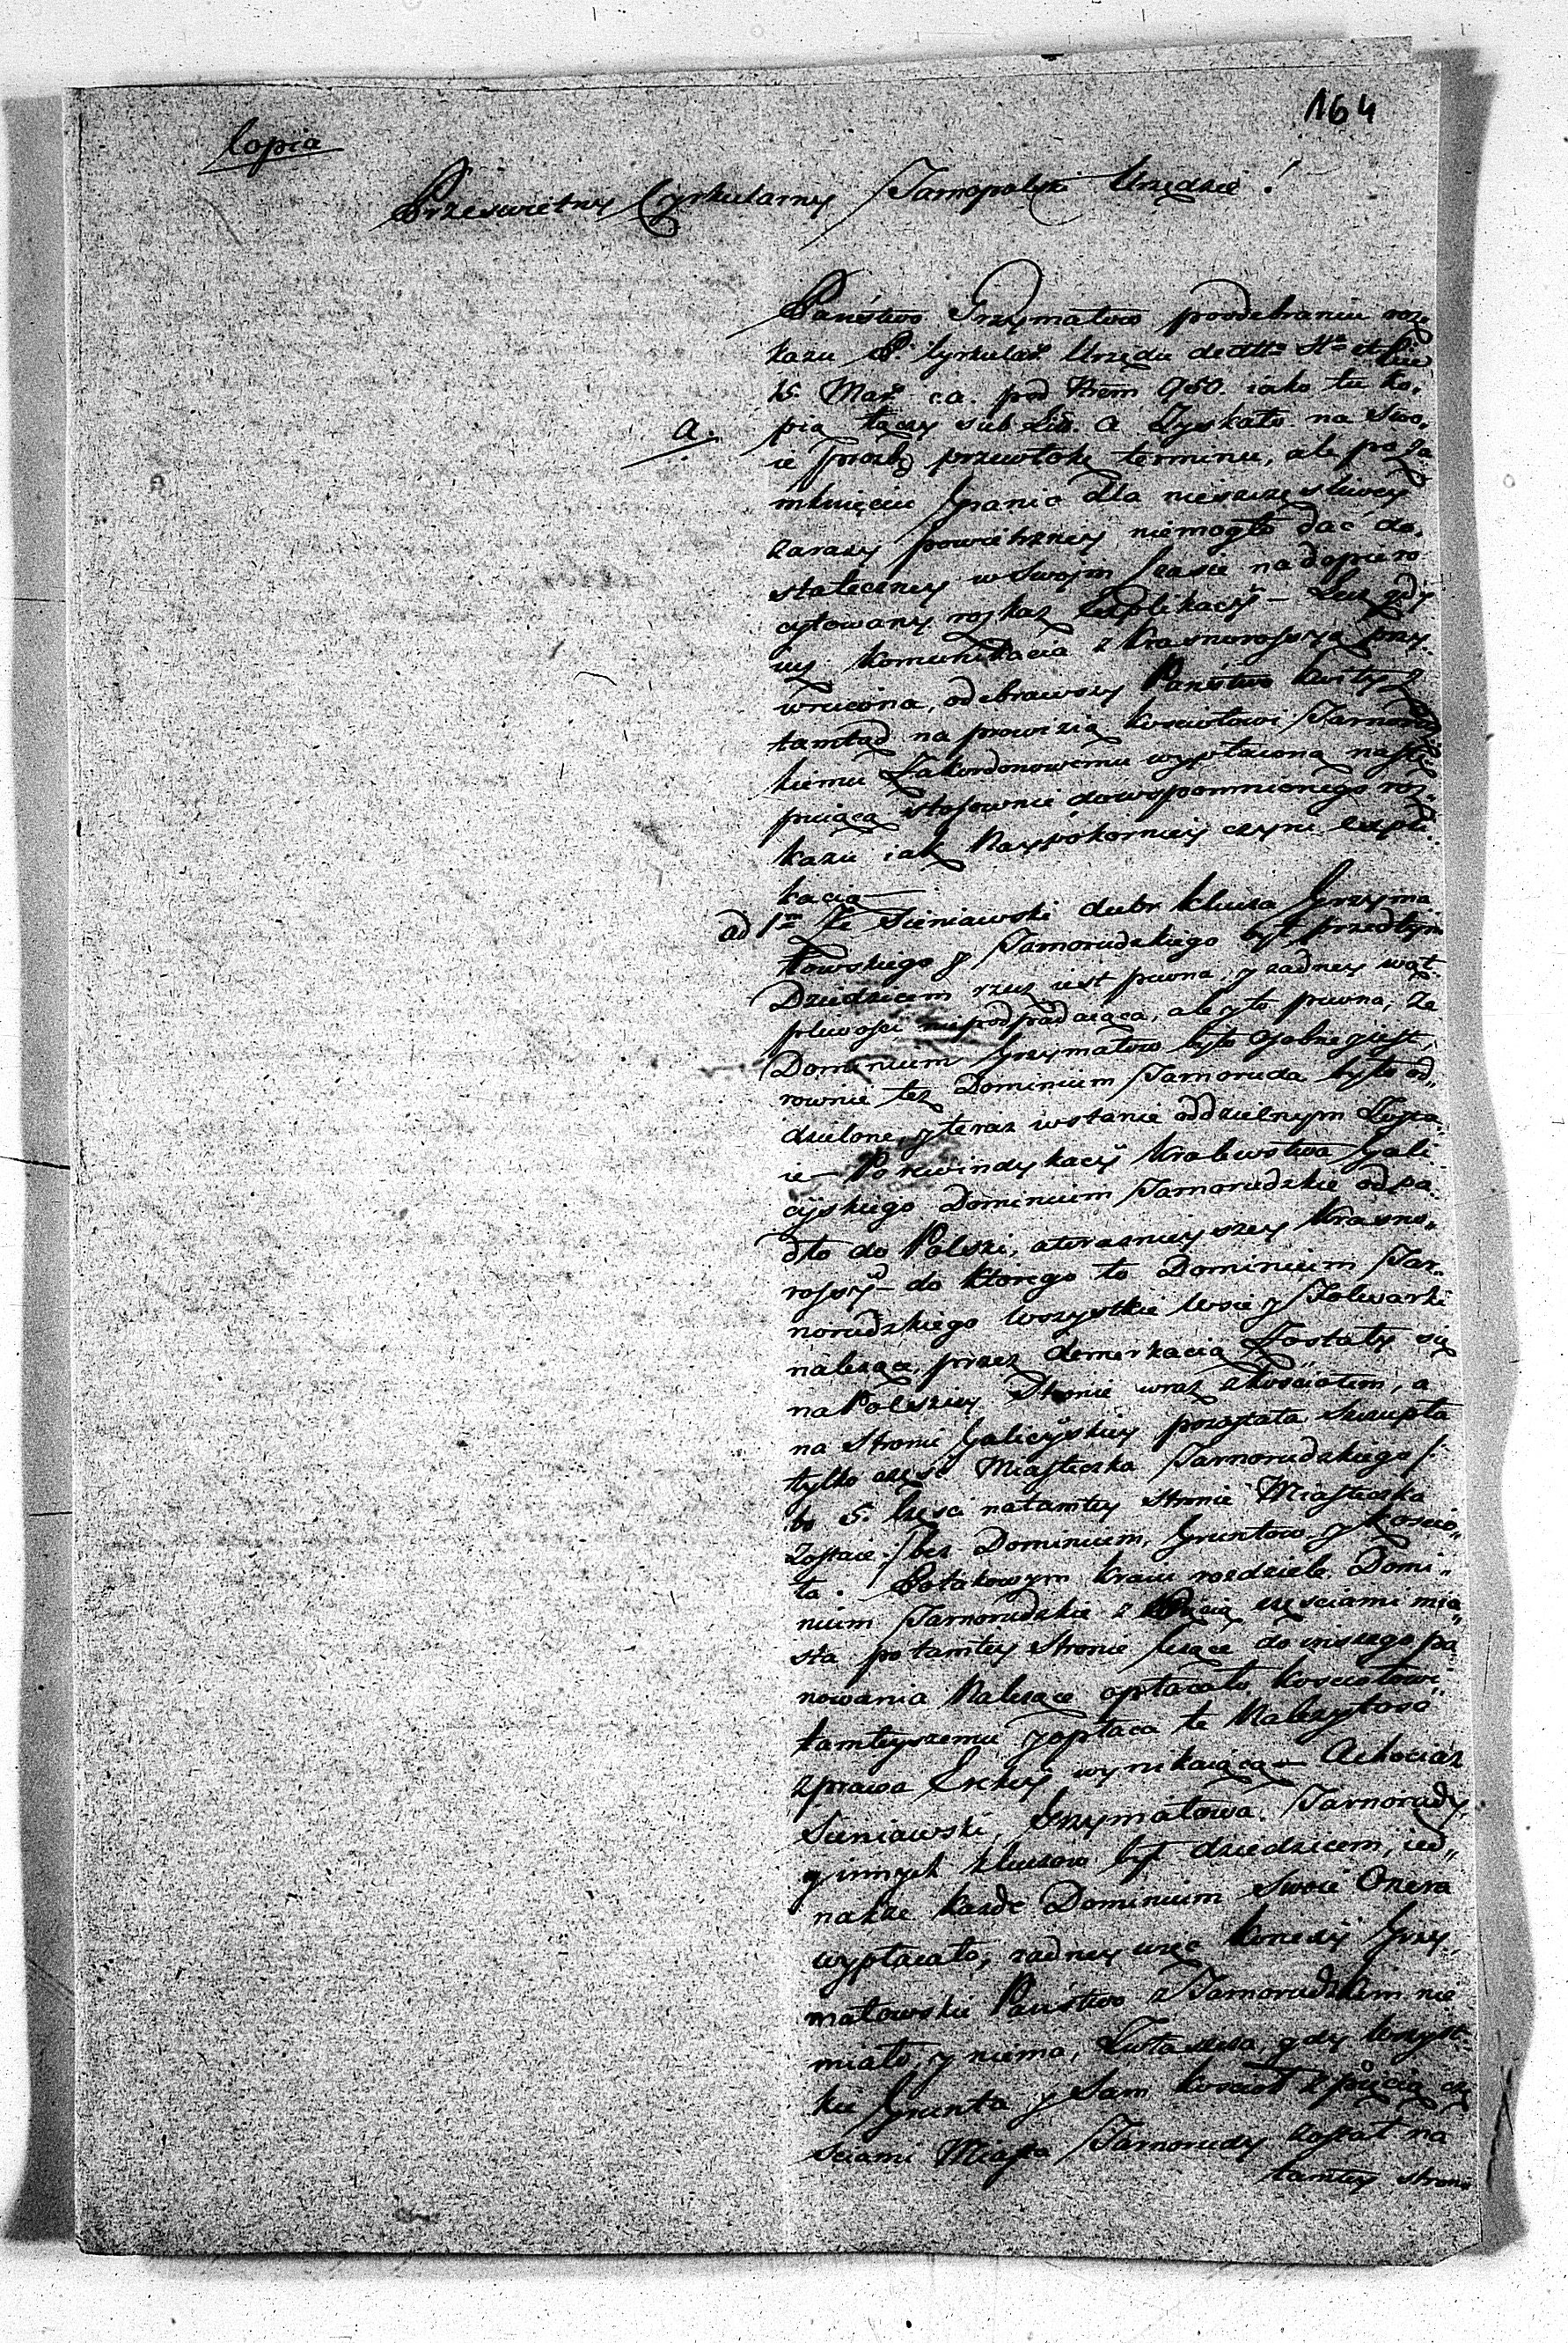 164
Copia
Przeswietny Cyrkularny Tarnopolski Urzędzie!
Państwo Grzymałow poodebraniu roz„
kazu P. Cyrkular. Urzędu de
15. Mar. c.a. pod Nrem 950. iako tu ko„
a.
pia łączy sub Lit. a Zyskało na swo„
ie prozbę przewłokę terminu, ale po za„
mknięciu Granic dla nieszczęsliwey
zarazy powietrzney niemogło dać do„
stateczney w swoim Czasie nadopiero
cytowany roskaz Explikacyi — Lecz gdy
iuz komunikacia z Krasnorossyą przy„
wrucona, odebrawszy Państwo kwity z
tamtąd na prowizią kosciołowi Tarnorudz
kiemu Zakordonowemu wypłaconą nastę
puiącą stosownie dowspomnionego roz„
kazu iak Naypokorniey czyni expli„
kacią —
ad 1m Ze Sieniawski dubr klucza Grzyma
łowskiego y Tarnorudzkiego był przedtym
Dziedzicem rzecz iest pewna, y zadney wąt„
pliwości niepodpadaiąca, ale y to pewna, ze
Dominium Grzymałow było osobne y iest,
rownie tez Dominium Tarnoruda było od„
dzielone, y teraz wstanie oddzielnym Zosta„
ie — Po rewindykacyi Krolewstwa Gali
cyiskiego Dominium Tarnorudzkie odpa„
dło do Polski, aterazniey szey Krasno„
rossyi — do ktorego to Dominium Tar„
norudzkiego wszystkie Wsie y Folwarki
nalezące, przez demarkacią Zostały się
na Polskiey Stronie wraz zkościołem, a
na stronie Galicyiskiey pozostała szczupła
tylko częsc Miasteczka Tarnorudzkiego /:
bo 5. Częsci natamtey stronie Miasteczka
Zostaie :/ bez Dominium, Gruntow, y Koscio„
ła. Potakowym kraiu rozdziele Domi„
nium Tarnorudzkie z Pięcią częsciami mia„
sta po tamtey Stronie lezące do inszego pa
nowania Nalezące opłacało kosciołowi
tamteyszemu y opłaca te Nalezytosc
zprawa Erekcyi wynikaiącą — Achociaz
Sieniawski, Grzymałowa, Tarnorudy
y innych kluczow był dziedzicem, ied„
nakze kazde Dominium swoie Onera
wypłacało, zadney więc konexyi Grzy„
małowskie Państwo z Tarnorudzkim nie
miało, y niema, Zwłaszcza, gdy wszyst„
kie Grunta y Sam kosciół z pięcią czę
sciami Miasta Tarnorudy został na
tamtey stronie